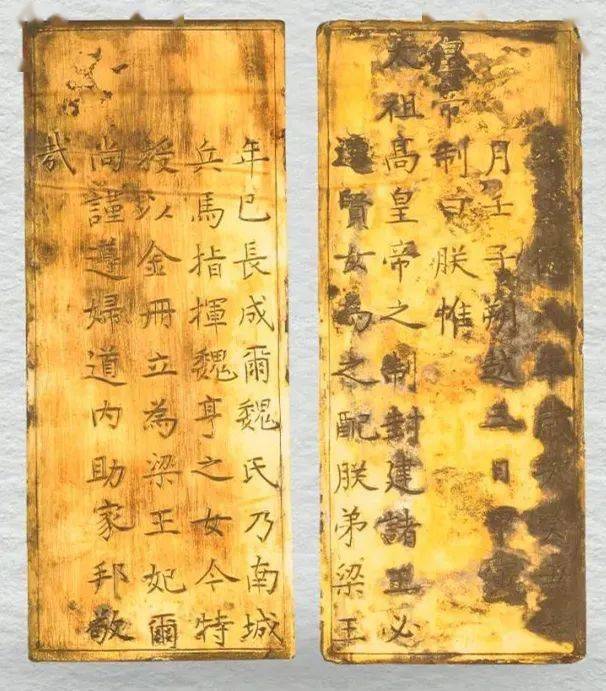 德八年歲次癸丑
月壬子朔越三日
皇帝制曰朕惟
太祖高皇帝之制封建諸王必
選賢女為之配朕弟梁王
年已長成爾魏氏乃南城
兵馬指揮魏亨之女今特
授以金冊立為梁王妃爾
尚謹遵婦道內助家邦敬
哉